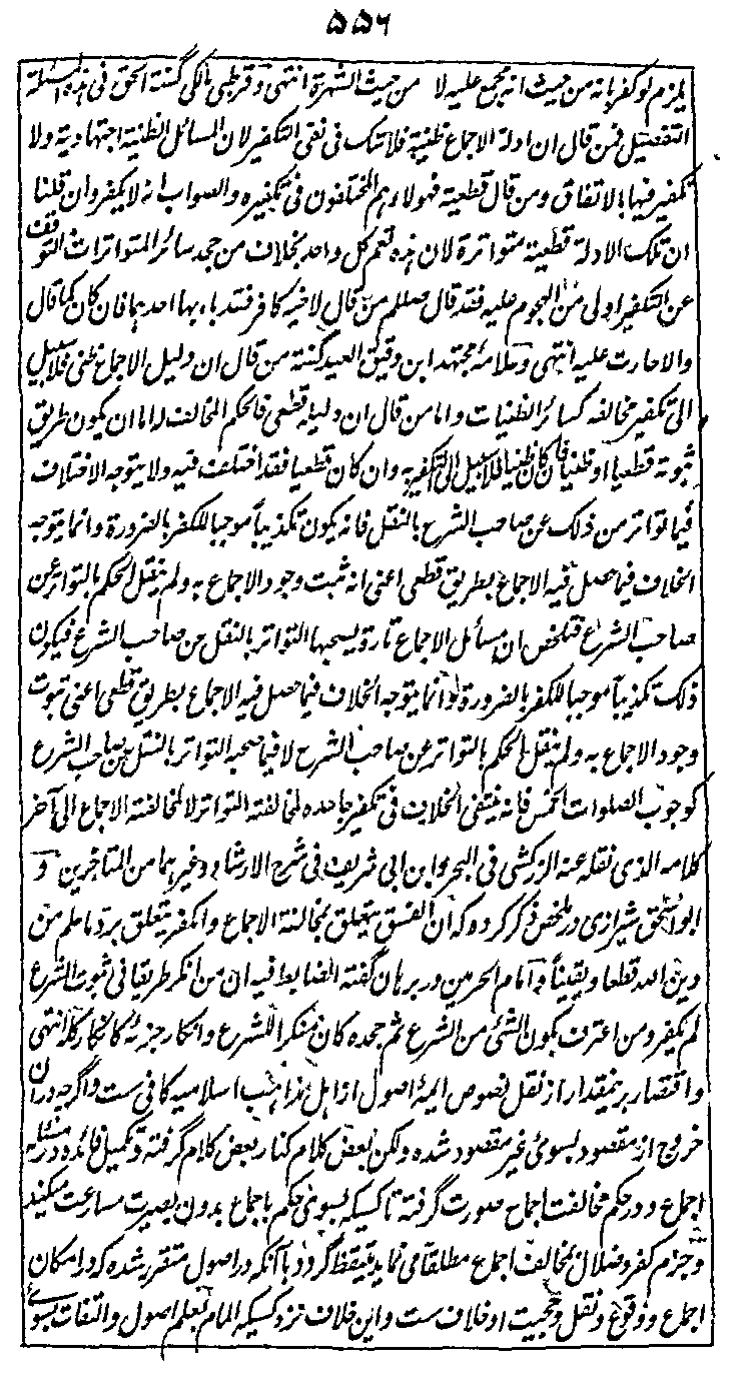 ۵۵۶
یلزم لو کفر بانه من حیث انه مجمع علیه لا من حیث الشهرة انتهی و قرطبی مالکی گفته الحق فی هذه المسئلة
التفصیل فمن قال ان ادلة الاجماع ظنیة فلا شک فی نفی التکفیر لان المسائل الظنیة اجتهادیة ولا
تکفیر فیها بالاتفاق ومن قال قطعیة فهولاء هم المختلفون فی تکفیره والصواب انه لا یکفر وان قلنا
ان تلک الادلة قطعیة متواترة لان هذه لم تعم کل واحد بخلاف من جحد سائر المتواترات التوقف
عن التکفیر اولی من الهجوم علیه فقد قال صللم من قال لاخیه کافر فقد باء بها احدهما فان کان کما قال
والا حارت علیه انتهی و علامهٔ مجتهد ابن دقیق العید گفته من قال ان دلیل الاجماع ظنی فلا سبیل
الی تکفیر مخالفه کسائر الظنیات واما من قال ان دلیله قطعی فالحکم المخالف له اما ان یکون طریق
ثبوته قطعیا او ظنیا فان کان ظنیا فلا سبیل الی التکفیر به وان کان قطعیا فقد اختلف فیه ولا یتوجه الاختلاف
فیما تواتر من ذلک عن صاحب الشرع بالنقل فانه یکون تکذیباً موجبا للکفر بالضرورة وانما یتوجه
الخلاف فیما حصل فیه الاجماع بطریق قطعی اعنی انه ثبت وجود الاجماع به ولم ینقل الحکم بالتواتر عن
صاحب الشرع فتلخص ان مسائل الاجماع تارة یصحبها التواتر بالنقل عن صاحب الشرع فیکون
ذلک تکذیباً موجبا للکفر بالضرورة وانما یتوجه الخلاف فیما حصل فیه الاجماع بطریق قطعی اعنی ثبوت
وجود الاجماع به ولم ینقل الحکم بالتواتر عن صاحب الشرع لا فیما صحبه التواتر بالنقل عن صاحب الشرع
کوجوب الصلوات الخمس فانه ینتفی الخلاف فی تکفیر جاحده لمخالفته التواتر لا لمخالفته الاجماع الی آخر
کلامه الذی نقله عنه الزرکشی فی البحر وابن ابی شریف فی شرح الارشاد وغیرهما من المتأخرین و
ابو اسحق شیرازی در ملخص ذکر کرده که ان الفسق یتعلق بمخالفة الاجماع والکفر یتعلق برد ما علم من
دین الله قطعا ویقیناً و امام الحرمین در برهان گفته الضابط فیه ان من انکر طریقا فی ثبوت الشرع
لم یکفر ومن اعترف بکون الشیٔ من الشرع ثم جحده کان منکرا للشرع وانکار جزئه کانکار کله انتهی
و اقتصار بر ینمقدار از نقل نصوص ایمهٔ اصول از اهل مذاهب اسلامیه کافی ست و اگرچه در ان
خروج از مقصود بسوی غیر مقصود شده ولکن بعض کلام کنار بعض کلام گرفته و تکمیل فائده در مسئله
اجماع و در حکم مخالفت اجماع صورت گرفته تا کسیکه بسوی حکم باجماع بدون بصیرت مسارعت میکند
و جزم کفر و ضلال بمخالف اجماع مطلقا می نماید متیقظ گردد با آنکه در اصول متقرر شده که در امکان
اجماع و وقوع و نقل و حجیت او خلاف ست و این خلاف نزد کسیکه المام بعلم اصول و التفات بسوی